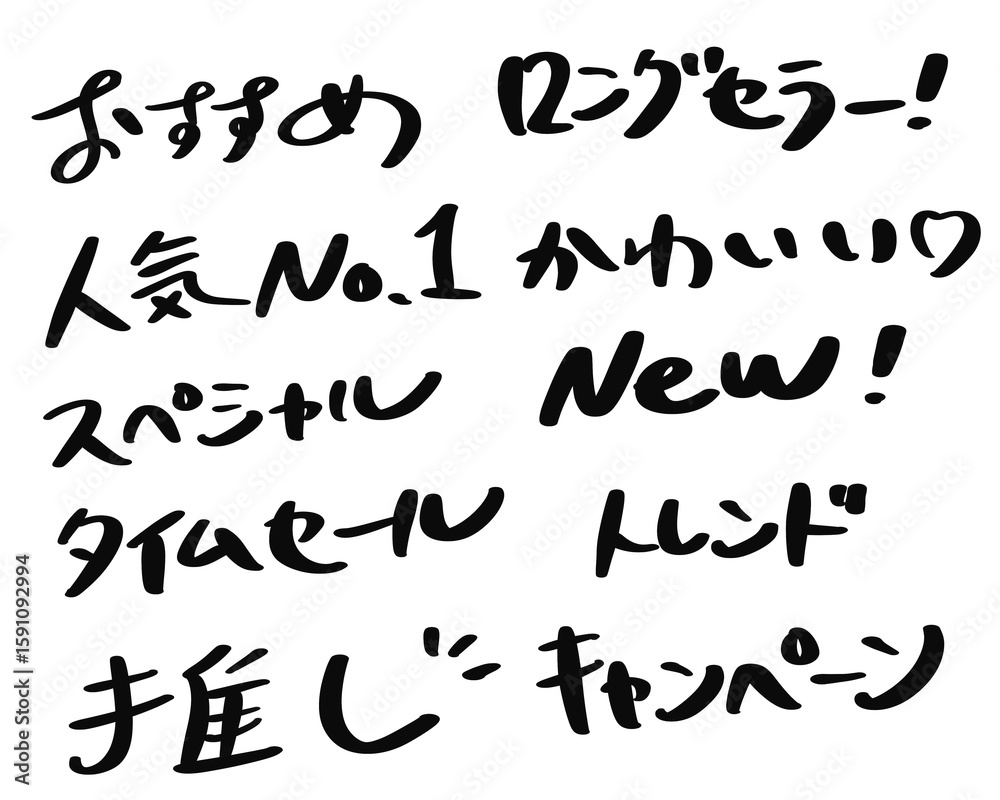 おすすめ
ロングセラー！
人気No.1
かわいい♡
スペシャル
New！
タイムセール
トレンド
推し
キャンペーン
Adobe Stock | #1591092994